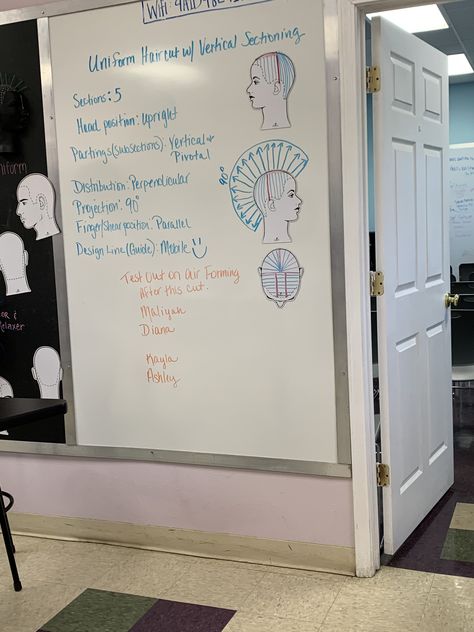 WIFI:
Uniform Haircut w/ Vertical Sectioning
Sections: 5
Head position: Upright
Partings (subsections): Vertical +
Pivotal
Distribution: Perpendicular
Projection: 90°
Finger/shear position: Parallel
Design Line (Guide): Mobile
90°
Test Out on air Forming
After this cut.
Maliyah
Diana
Kayla
Ashley
niform